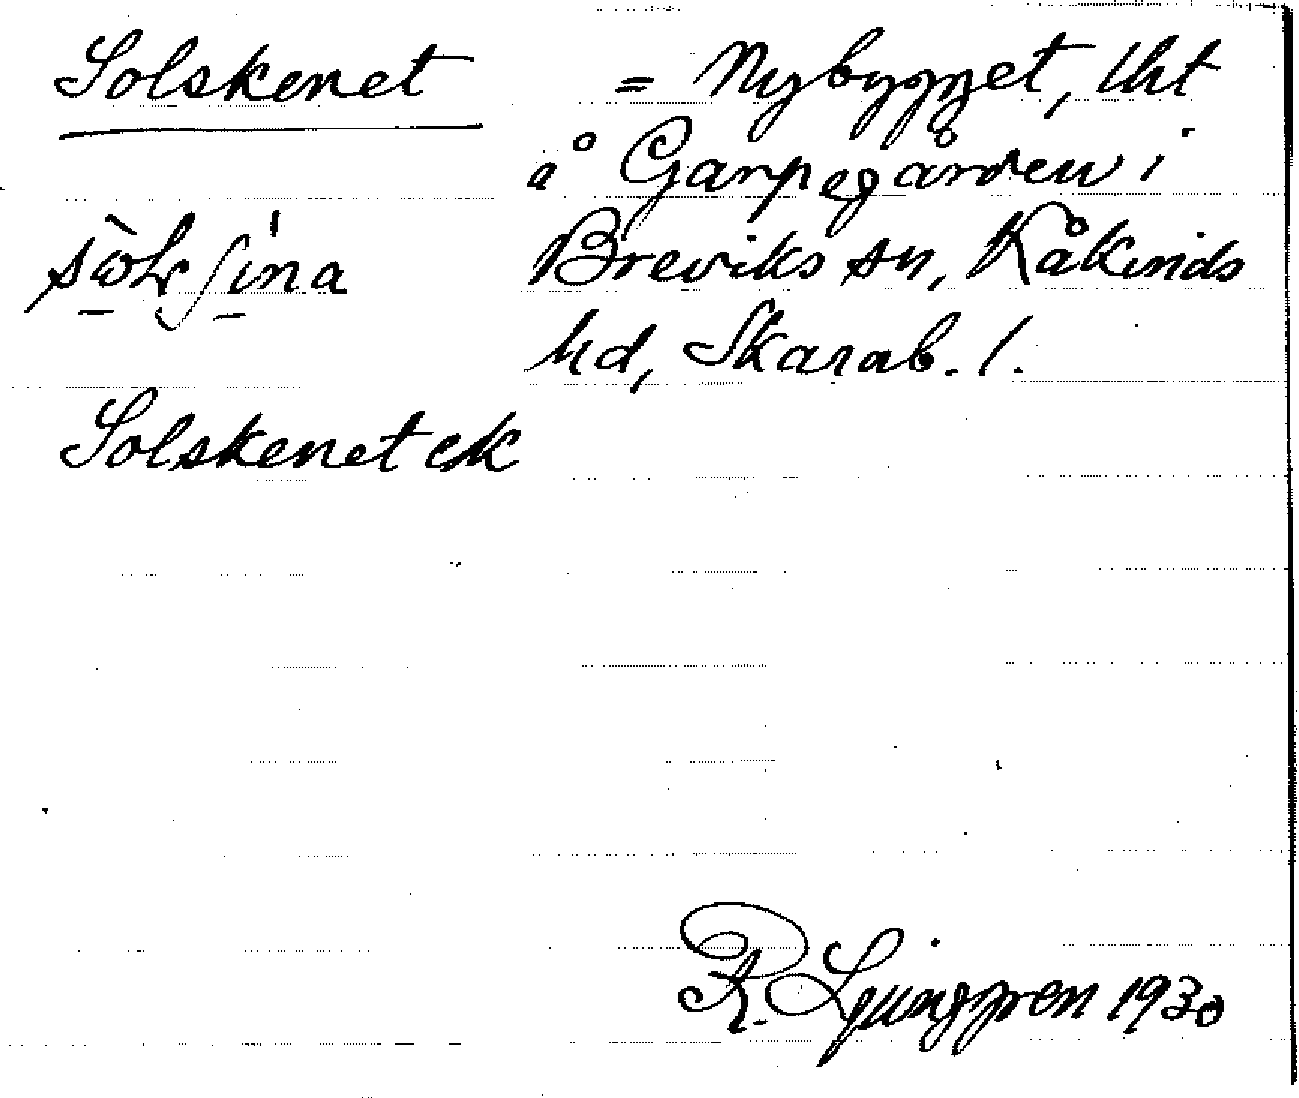 Solskenet = Nybygget, lht
å Garpegården i
Breviks sn, Kåkinds
hd, Skarab. l.
Solskenet ek
R. Ljunggren 1930